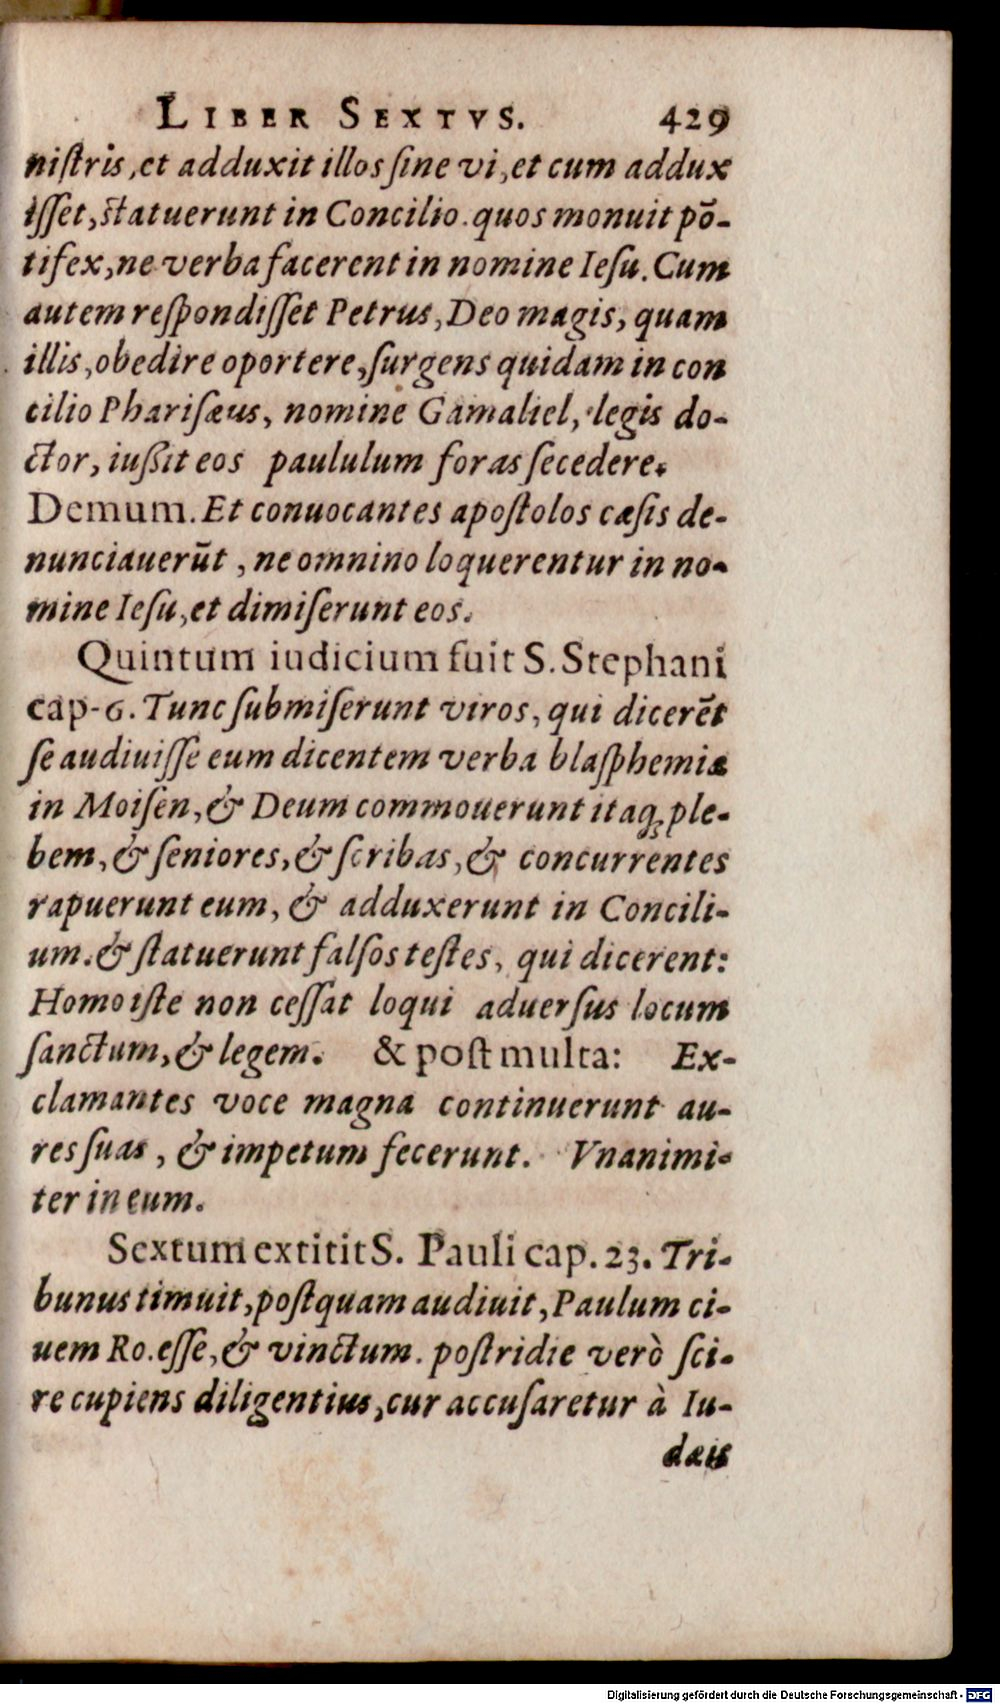 LIBER SEXTVS. 429
niſtris, et adduxit illos ſine vi, et cum addux
iſſet, ſtatuerunt in Concilio. quos monuit põ-
tifex, ne verba facerent in nomine Ieſu. Cum
autem reſpondiſſet Petrus, Deo magis, quam
illis, obedire oportere, ſurgens quidam in con
cilio Phariſæus, nomine Gamaliel, legis do-
ctor, iußit eos paululum foras ſecedere.
Demum. Et conuocantes apoſtolos cæſis de-
nunciauerũt, ne omnino loquerentur in no-
mine Ieſu, et dimiſerunt eos.
Quintum iudicium fuit S. Stephani
cap-6. Tunc ſubmiſerunt viros, qui dicerẽt
ſe audiuiſſe eum dicentem verba blaſphemiæ
in Moiſen, & Deum commouerunt itaq; ple-
bem, & ſeniores, & ſcribas, & concurrentes
rapuerunt eum, & adduxerunt in Concili-
um. & ſtatuerunt falſos teſtes, qui dicerent:
Homo iſte non ceſſat loqui aduerſus locum
ſanctum, & legem. & poſt multa: Ex-
clamantes voce magna continuerunt au-
res ſuas, & impetum fecerunt. Vnanimi-
ter in eum.
Sextum extitit S. Pauli cap. 23. Tri-
bunus timuit, poſtquam audiuit, Paulum ci-
uem Ro. eſſe, & vinctum. poſtridie verò ſci-
re cupiens diligentius, cur accuſaretur à Iu-
dæis
Digitalisierung gefördert durch die Deutsche Forschungsgemeinschaft - DFG